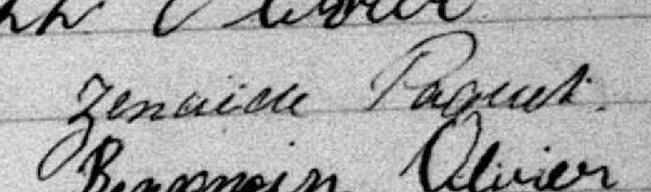 Olivier
Zenaïde Paquet.
Benjamin Olivier